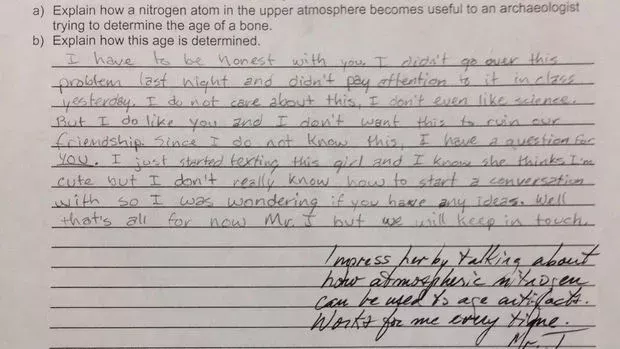 a) Explain how a nitrogen atom in the upper atmosphere becomes useful to an archaeologist
trying to determine the age of a bone.
b) Explain how this age is determined.
I have to be honest with you I didn't go over this
problem last night and didn't pay attention to it in class
yesterday. I do not care about this, I don't even like science.
But I do like you and I don't want this to ruin our
friendship. Since I do not know this, I have a question for
you. I just started texting this girl and I know she thinks I'm
cute but I don't really know how to start a conversation
with so I was wondering if you have any ideas. Well
that's all for now Mr. J but we will keep in touch.
Impress her by talking about
how atmospheric nitrogen
can be used to age artifacts.
Works for me every time.
Mr. J